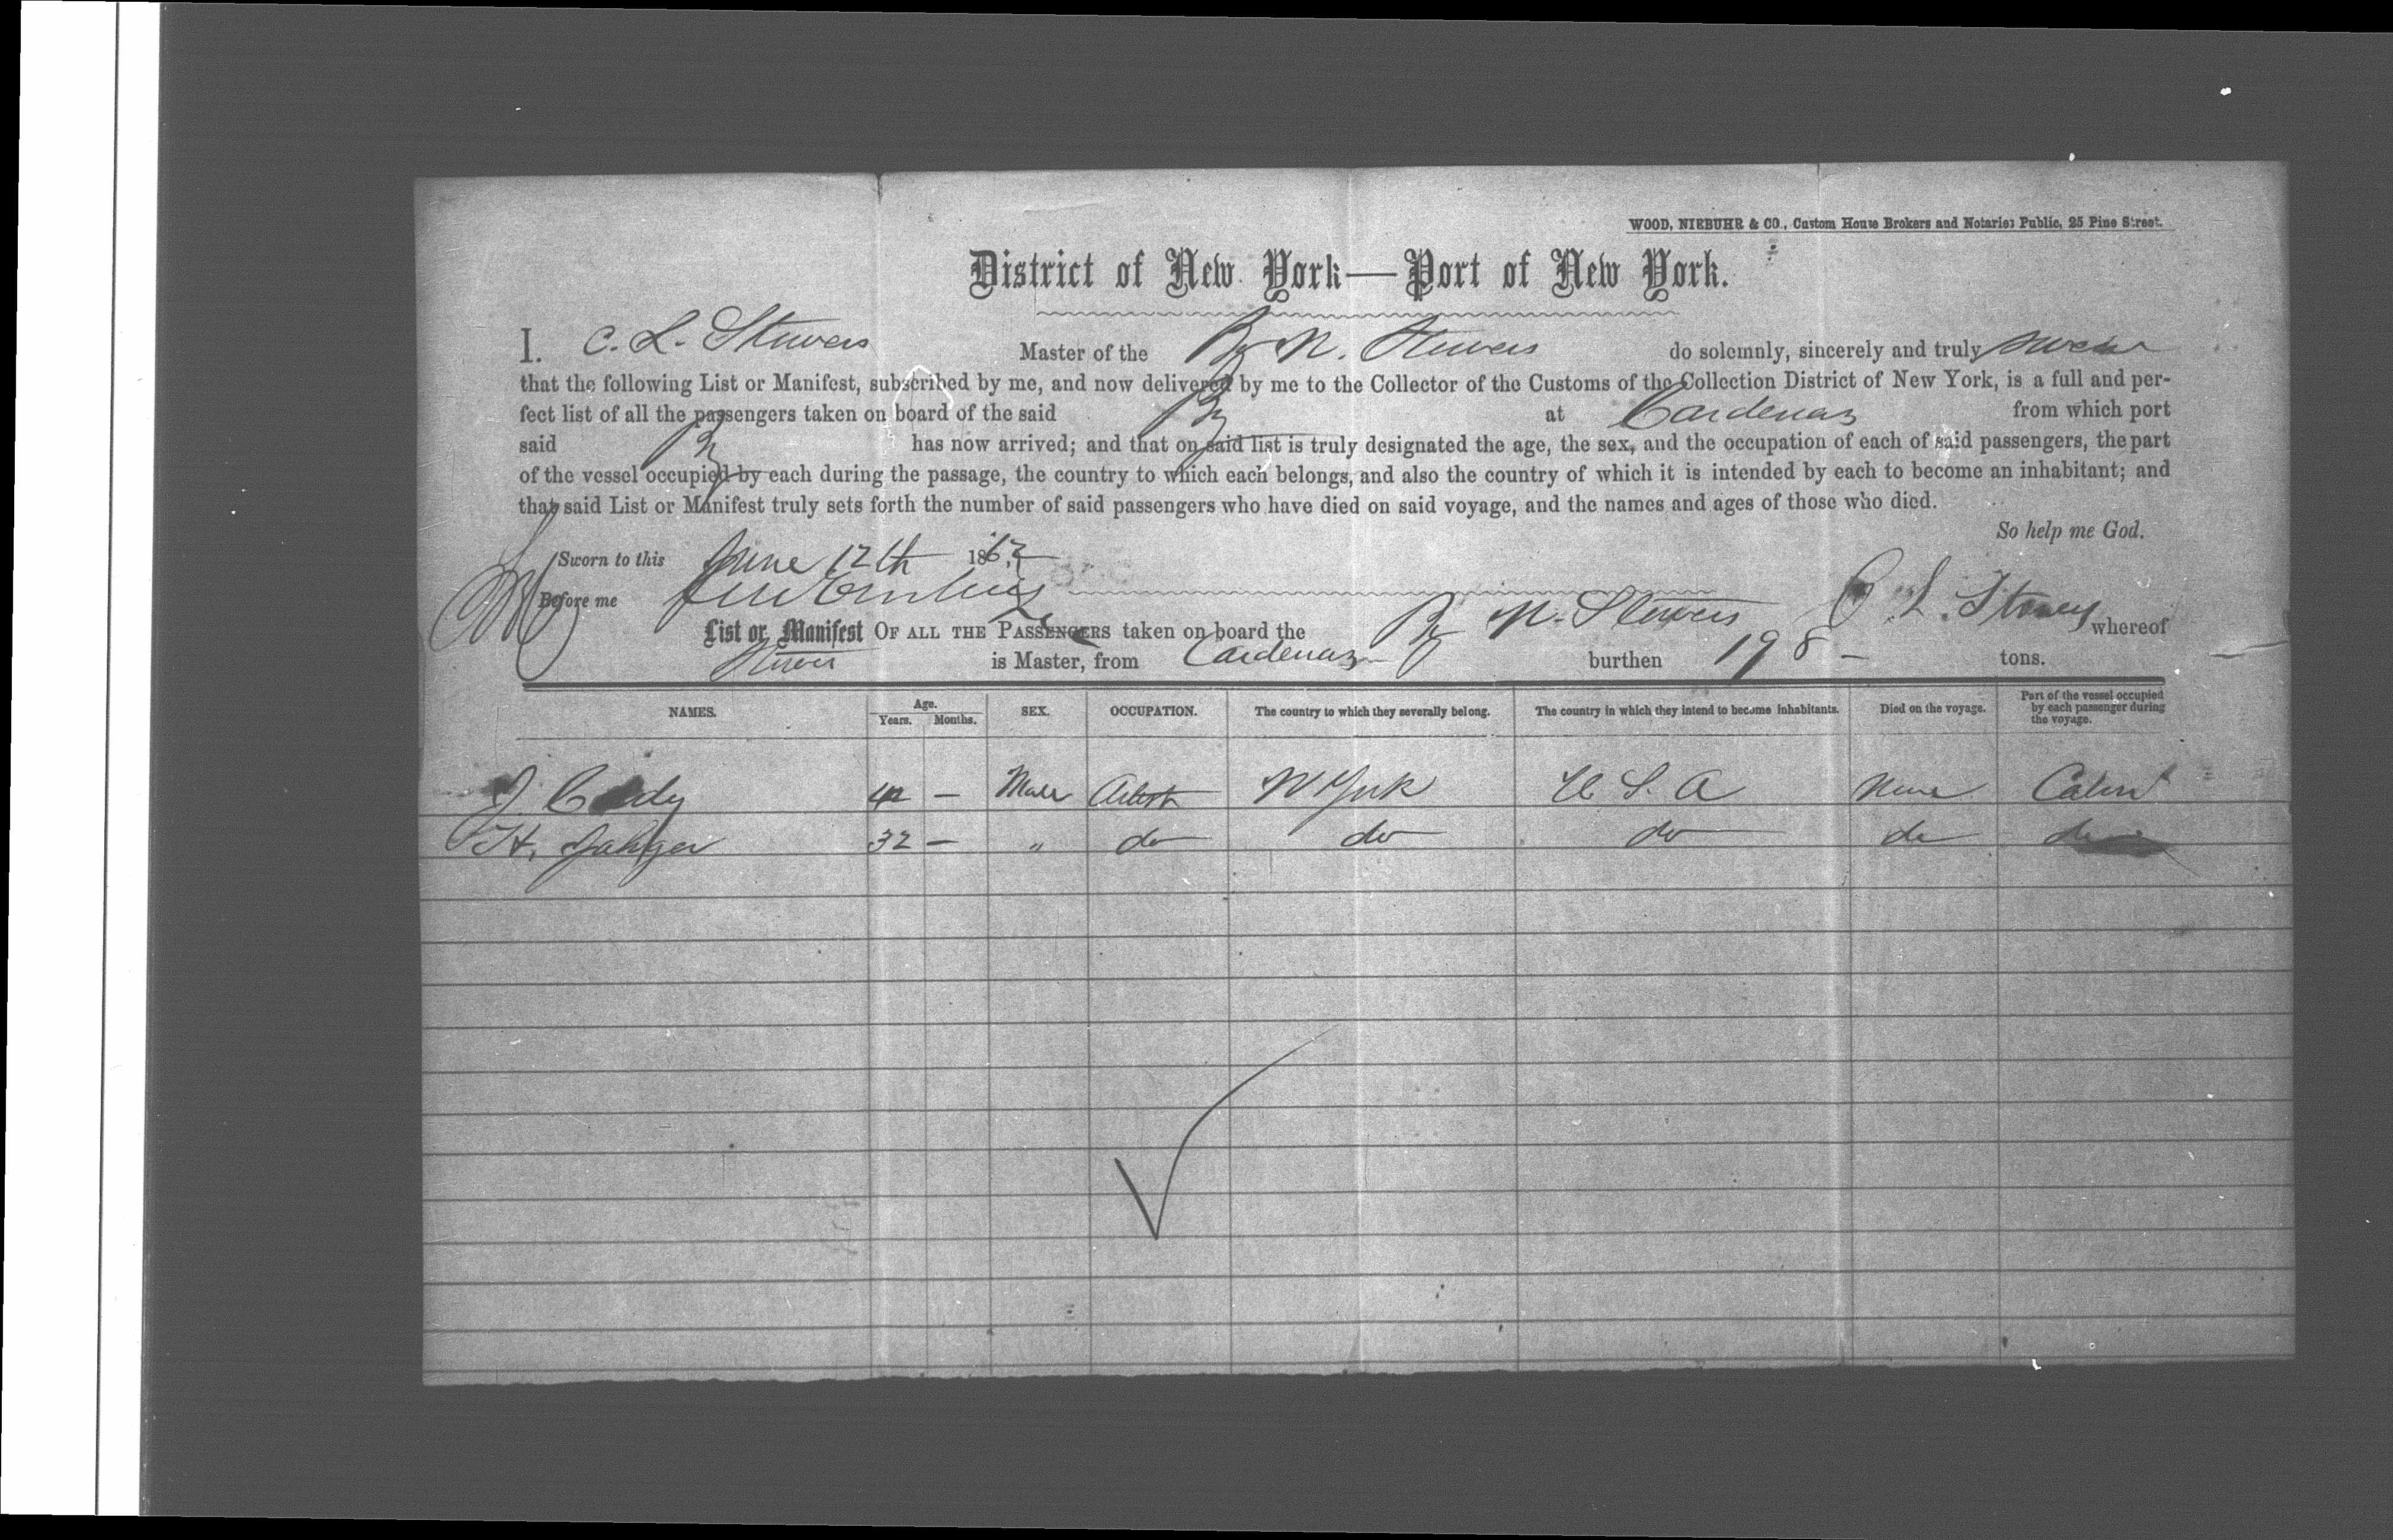 WOOD, NIEBUHR & CO., Custom House Brokers and Notaries Public, 25 Pine Street.
District of New York—Port of New York.
I. C. L. Stevers Master of the Bg N. Stevers do solemnly, sincerely and truly swear
that the following List or Manifest, subscribed by me, and now delivered by me to the Collector of the Customs of the Collection District of New York, is a full and per-
fect list of all the passengers taken on board of the said Bg at Cardenas from which port
said Bg has now arrived; and that on said list is truly designated the age, the sex, and the occupation of each of said passengers, the part
of the vessel occupied by each during the passage, the country to which each belongs, and also the country of which it is intended by each to become an inhabitant; and
that said List or Manifest truly sets forth the number of said passengers who have died on said voyage, and the names and ages of those who died.
So help me God.
Sworn to this June 12th 1862
Before me
List or Manifest OF ALL THE PASSENGERS taken on board the Bg N. Stevers whereof
Stevers is Master, from Cardenas burthen 198 — tons.
NAMES. Age. Years. Months. SEX. OCCUPATION. The country to which they severally belong. The country in which they intend to become inhabitants. Died on the voyage. Part of the vessel occupied by each passenger during the voyage.
J — Male Artist N York U S. A None Cabin
H. 32 — " do do do do do